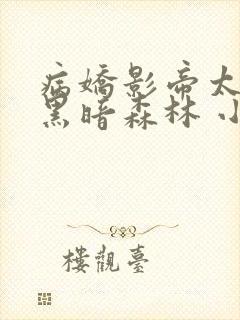 病嬌影帝太
黑暗森林 小
樓觀臺